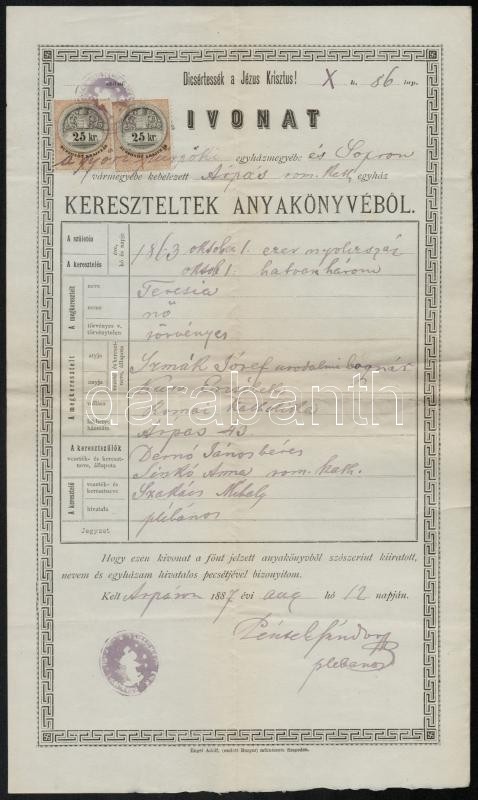 Dicsértessék a Jézus Krisztus! X k. 86 lap.
IVONAT
25 kr. 25 kr.
a győri püspöki egyházmegyébe és Sopron
vármegyébe kebelezett Árpás rom. kath. egyház
KERESZTELTEK ANYAKÖNYVÉBŐL.
A születés
A keresztelés
éve, hó és napja
1863 október 1. ezer nyolczszáz
októb 1. hatvanhárom
A megkeresztelt
neve
Teresia
neme
nő
törvényes v. törvénytelen
törvényes
A megkeresztelt
atyja
Szmák József uradalmi bognár
anyja
vallása
Római katholika
lakhelye, házszáma
Árpás 43
A keresztszülők
vezeték- és kereszt- neve, állapota
Dernó János béres
Sinkó Anna rom. kath.
A keresztelő
vezeték- és keresztneve
Szakács Mihály
hivatala
plébános
Jegyzet
Hogy ezen kivonat a fönt jelzett anyakönyvből szószerint kiiratott,
nevem és egyházam hivatalos pecsétjével bizonyítom.
Kelt Árpáson 1887 évi aug hó 12 napján.
Péntek Sándor
plébános
darabanth